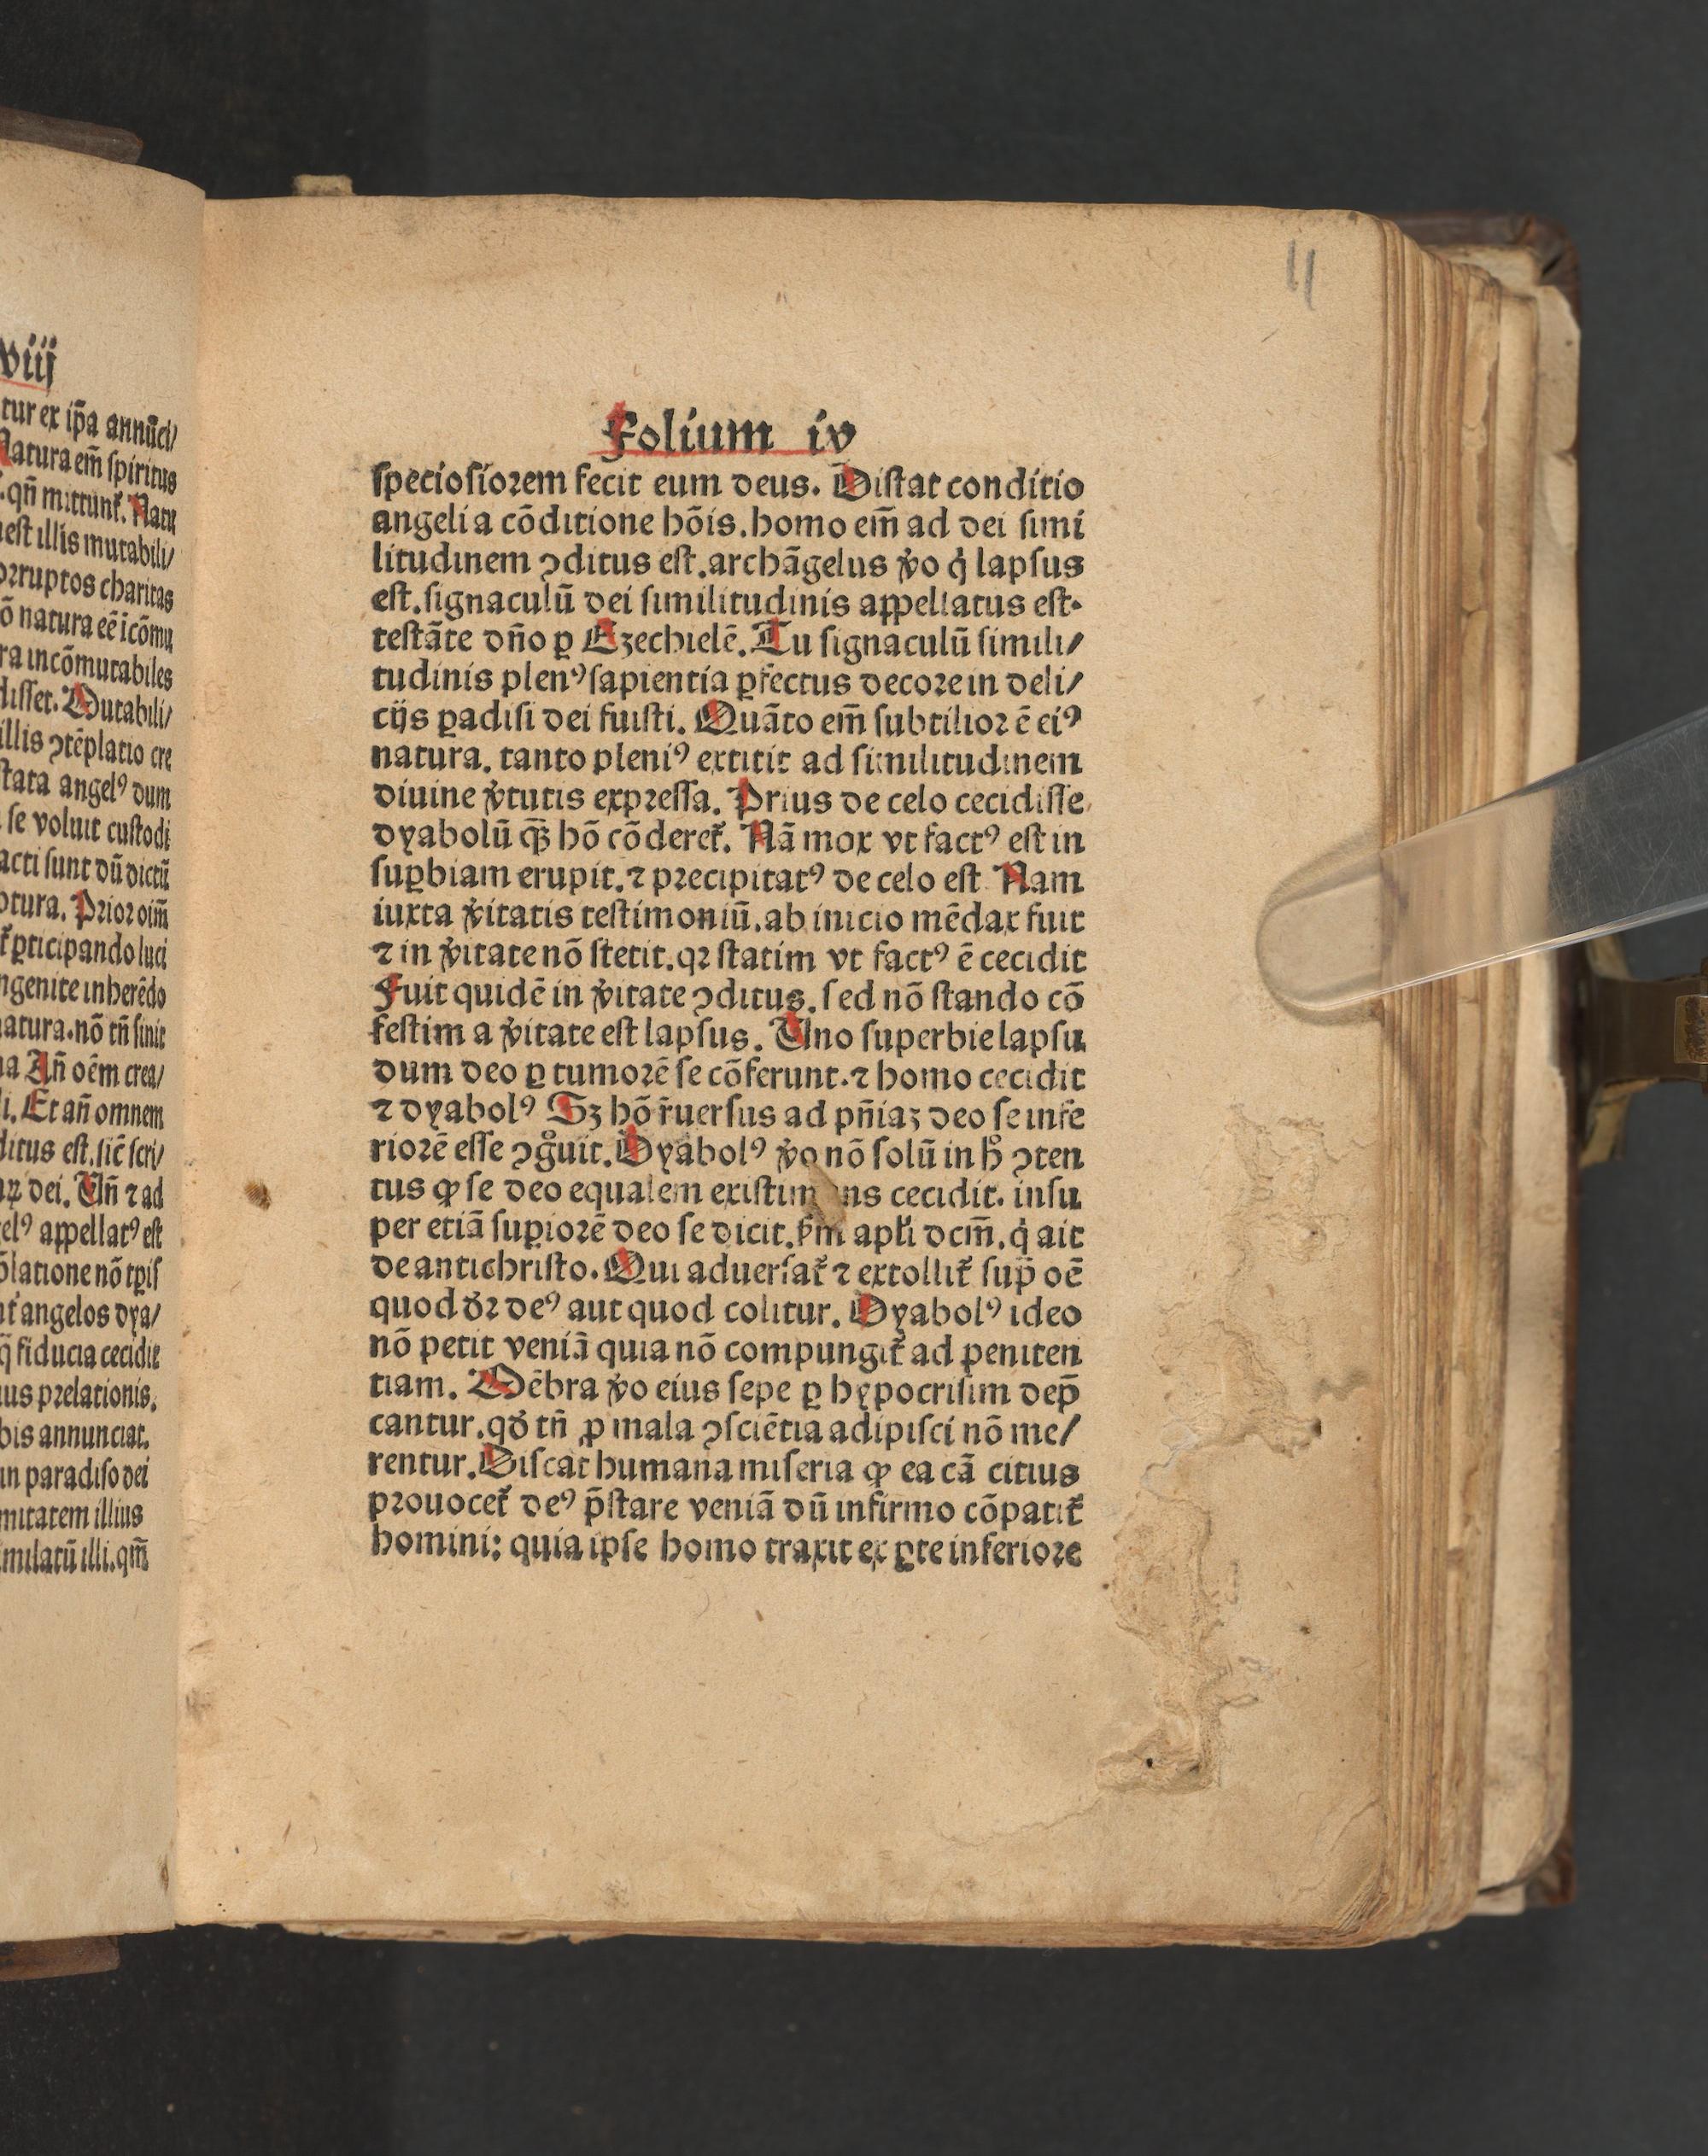 viij
tur ex ip̄a annūci/
Natura em̄ spiritus
.qn̄ mittunt᷑. Natu
est illis mutabili/
orruptos charitas
ō natura eē icōmu
ra incōmutabiles
disset. Mutabili/
illis ↄtēplatio cre
stata angelꝰ dum
se voluit custodi
acti sunt dū dictū
ptura. Prior oīm̄
t᷑ ꝑticipando luci
ngenite inherēdo
natura. nō tn̄ sinit
na An̄ oēm crea/
i. Et an̄ omnem
ditus est. sic̄ scri/
aꝝ dei. Un̄ ⁊ ad
elꝰ appellatꝰ est
ōlatione nō tꝑis
nt᷑ angelos dya/
q̄ fiducia cecidit
ius prelationis.
bis annunciat.
in paradiso dei
mitatem illius
imilatū illi. qm̄
11
Folium iv
speciosiorem fecit eum deus. Distat conditio
angeli a cōditione hōis. homo em̄ ad dei simi
litudinem ↄditus est. archāgelus v̓o q̓ lapsus
est. signaculū dei similitudinis appellatus est.
testāte dn̄o ꝑ Ezechielē. Tu signaculū simili/
tudinis plenꝰ sapientia ꝑfectus decore in deli/
cijs ꝑadisi dei fuisti. Quāto em̄ subtilior ē eiꝰ
natura. tanto pleniꝰ extitit ad similitudinem
diuine v̓tutis expressa. Prius de celo cecidisse
dyabolū q̄ꝫ hō cōderet᷑. Nā mox vt factꝰ est in
suꝑbiam erupit. ⁊ precipitatꝰ de celo est Nam
iuxta v̓itatis testimoniū. ab inicio mēdax fuit
⁊ in v̓itate nō stetit. qꝛ statim vt factꝰ ē cecidit
Fuit quidē in v̓itate ↄditus. sed nō stando cō
festim a v̓itate est lapsus. Uno superbie lapsu
dum deo ꝑ tumorē se cōferunt. ⁊ homo cecidit
⁊ dyabolꝰ Sꝫ hō r̄uersus ad pn̄iaꝫ deo se infe
riorē esse ↄgͦuit. Dyabolꝰ v̓o nō solū in hͦ ↄten
tus ꝙ se deo equalem existim ns cecidit. insu
per etiā suꝑiorē deo se dicit. ẜm apl̓i dcm̄. q̓ ait
de antichristo. Qui aduersat᷑ ⁊ extollit᷑ sup̄ oē
quod dꝛ deꝰ aut quod colitur. Dyabolꝰ ideo
nō petit veniā quia nō compungit᷑ ad peniten
tiam. Mēbra v̓o eius sepe ꝑ hypocrisim dep̄
cantur. qđ tn̄ ꝓ mala ↄsciētia adipisci nō me/
rentur. Discat humana miseria ꝙ ea cā citius
prouocet᷑ deꝰ p̄stare veniā dū infirmo cōpatit᷑
homini: quia ipse homo traxit ex ꝑte inferiore